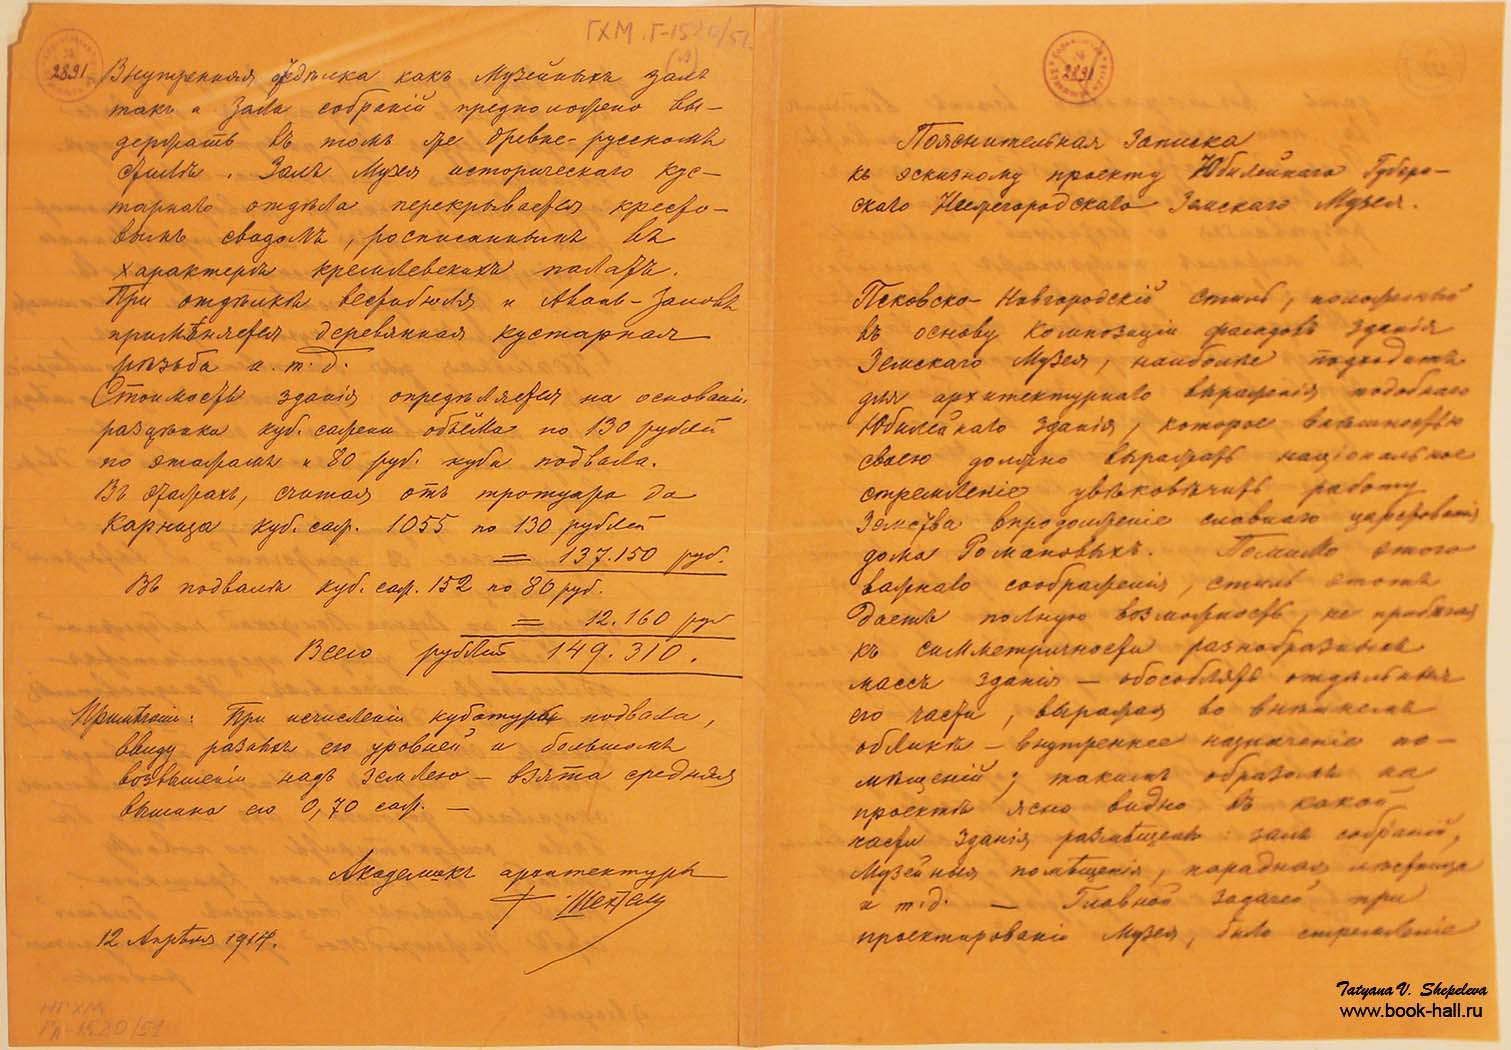 ГХМ. Г-1520/51.
2891
Внутренняя отдѣлка какъ Музейныхъ залъ
такъ и Зала собраній предположено вы-
держать въ томъ же древне-русскомъ
стилѣ. Залъ Музея историческаго кус-
тарнаго отдѣла перекрывается кресто-
вымъ сводомъ, росписаннымъ въ
характерѣ кремлевскихъ палатъ.
При отдѣлкѣ вестибюля и Аванъ-Заловъ
примѣняется деревянная кустарная
рѣзьба и.т.д.
Стоимость зданія опредѣляется на основаніи
расцѣнки куб. сажени объёма по 130 рублей
по этажамъ и 80 руб. куба подвала.
Въ этажахъ, считая отъ тротуара до
Карниза куб. саж. 1055 по 130 рублей
= 137.150 руб.
Въ подвалѣ куб. саж. 152 по 80 руб.
= 12.160 руб
Всего рублей 149.310.
Примѣчаніе: При исчисленіи кубатуры подвала,
ввиду разныхъ его уровней и большомъ
возвышеніи надъ землею — взята средняя
вышина его 0,70 саж. —
Академикъ архитектуры
Ф. Шехтель
12 Апрѣля 1914.
НГХМ
Гл-1520/51
2891
Пояснительная Записка
къ эскизному проекту Юбилейнаго Губерн-
скаго Нижегородскаго Земскаго Музея.
Псковско-Новгородскій стиль, положенный
въ основу композиціи фасадовъ зданія
Земскаго Музея, наиболѣе подходитъ
для архитектурнаго выраженія подобнаго
Юбилейнаго зданія, которое внѣшностью
своею должно выражать національное
стремленіе увѣковѣчить работу
Земства впродолженіе славнаго царствованія
дома Романовыхъ. Помимо этого
важнаго соображенія, стиль этотъ
даетъ полную возможность, не прибѣгая
къ симметричности разнобразныхъ
массъ зданія — обособлять отдѣльныя
его части, выражая во внѣшнемъ
обликѣ — внутреннее назначеніе по-
мѣщеній; такимъ образомъ на
проектѣ ясно видно въ какой
части зданія размѣщены: залъ собраній,
Музейныя помѣщенія, парадная лѣстница
и т.д. — Главной задачей при
проектированіи Музея, было стремленіе
Tatyana V. Shepeleva
www.book-hall.ru